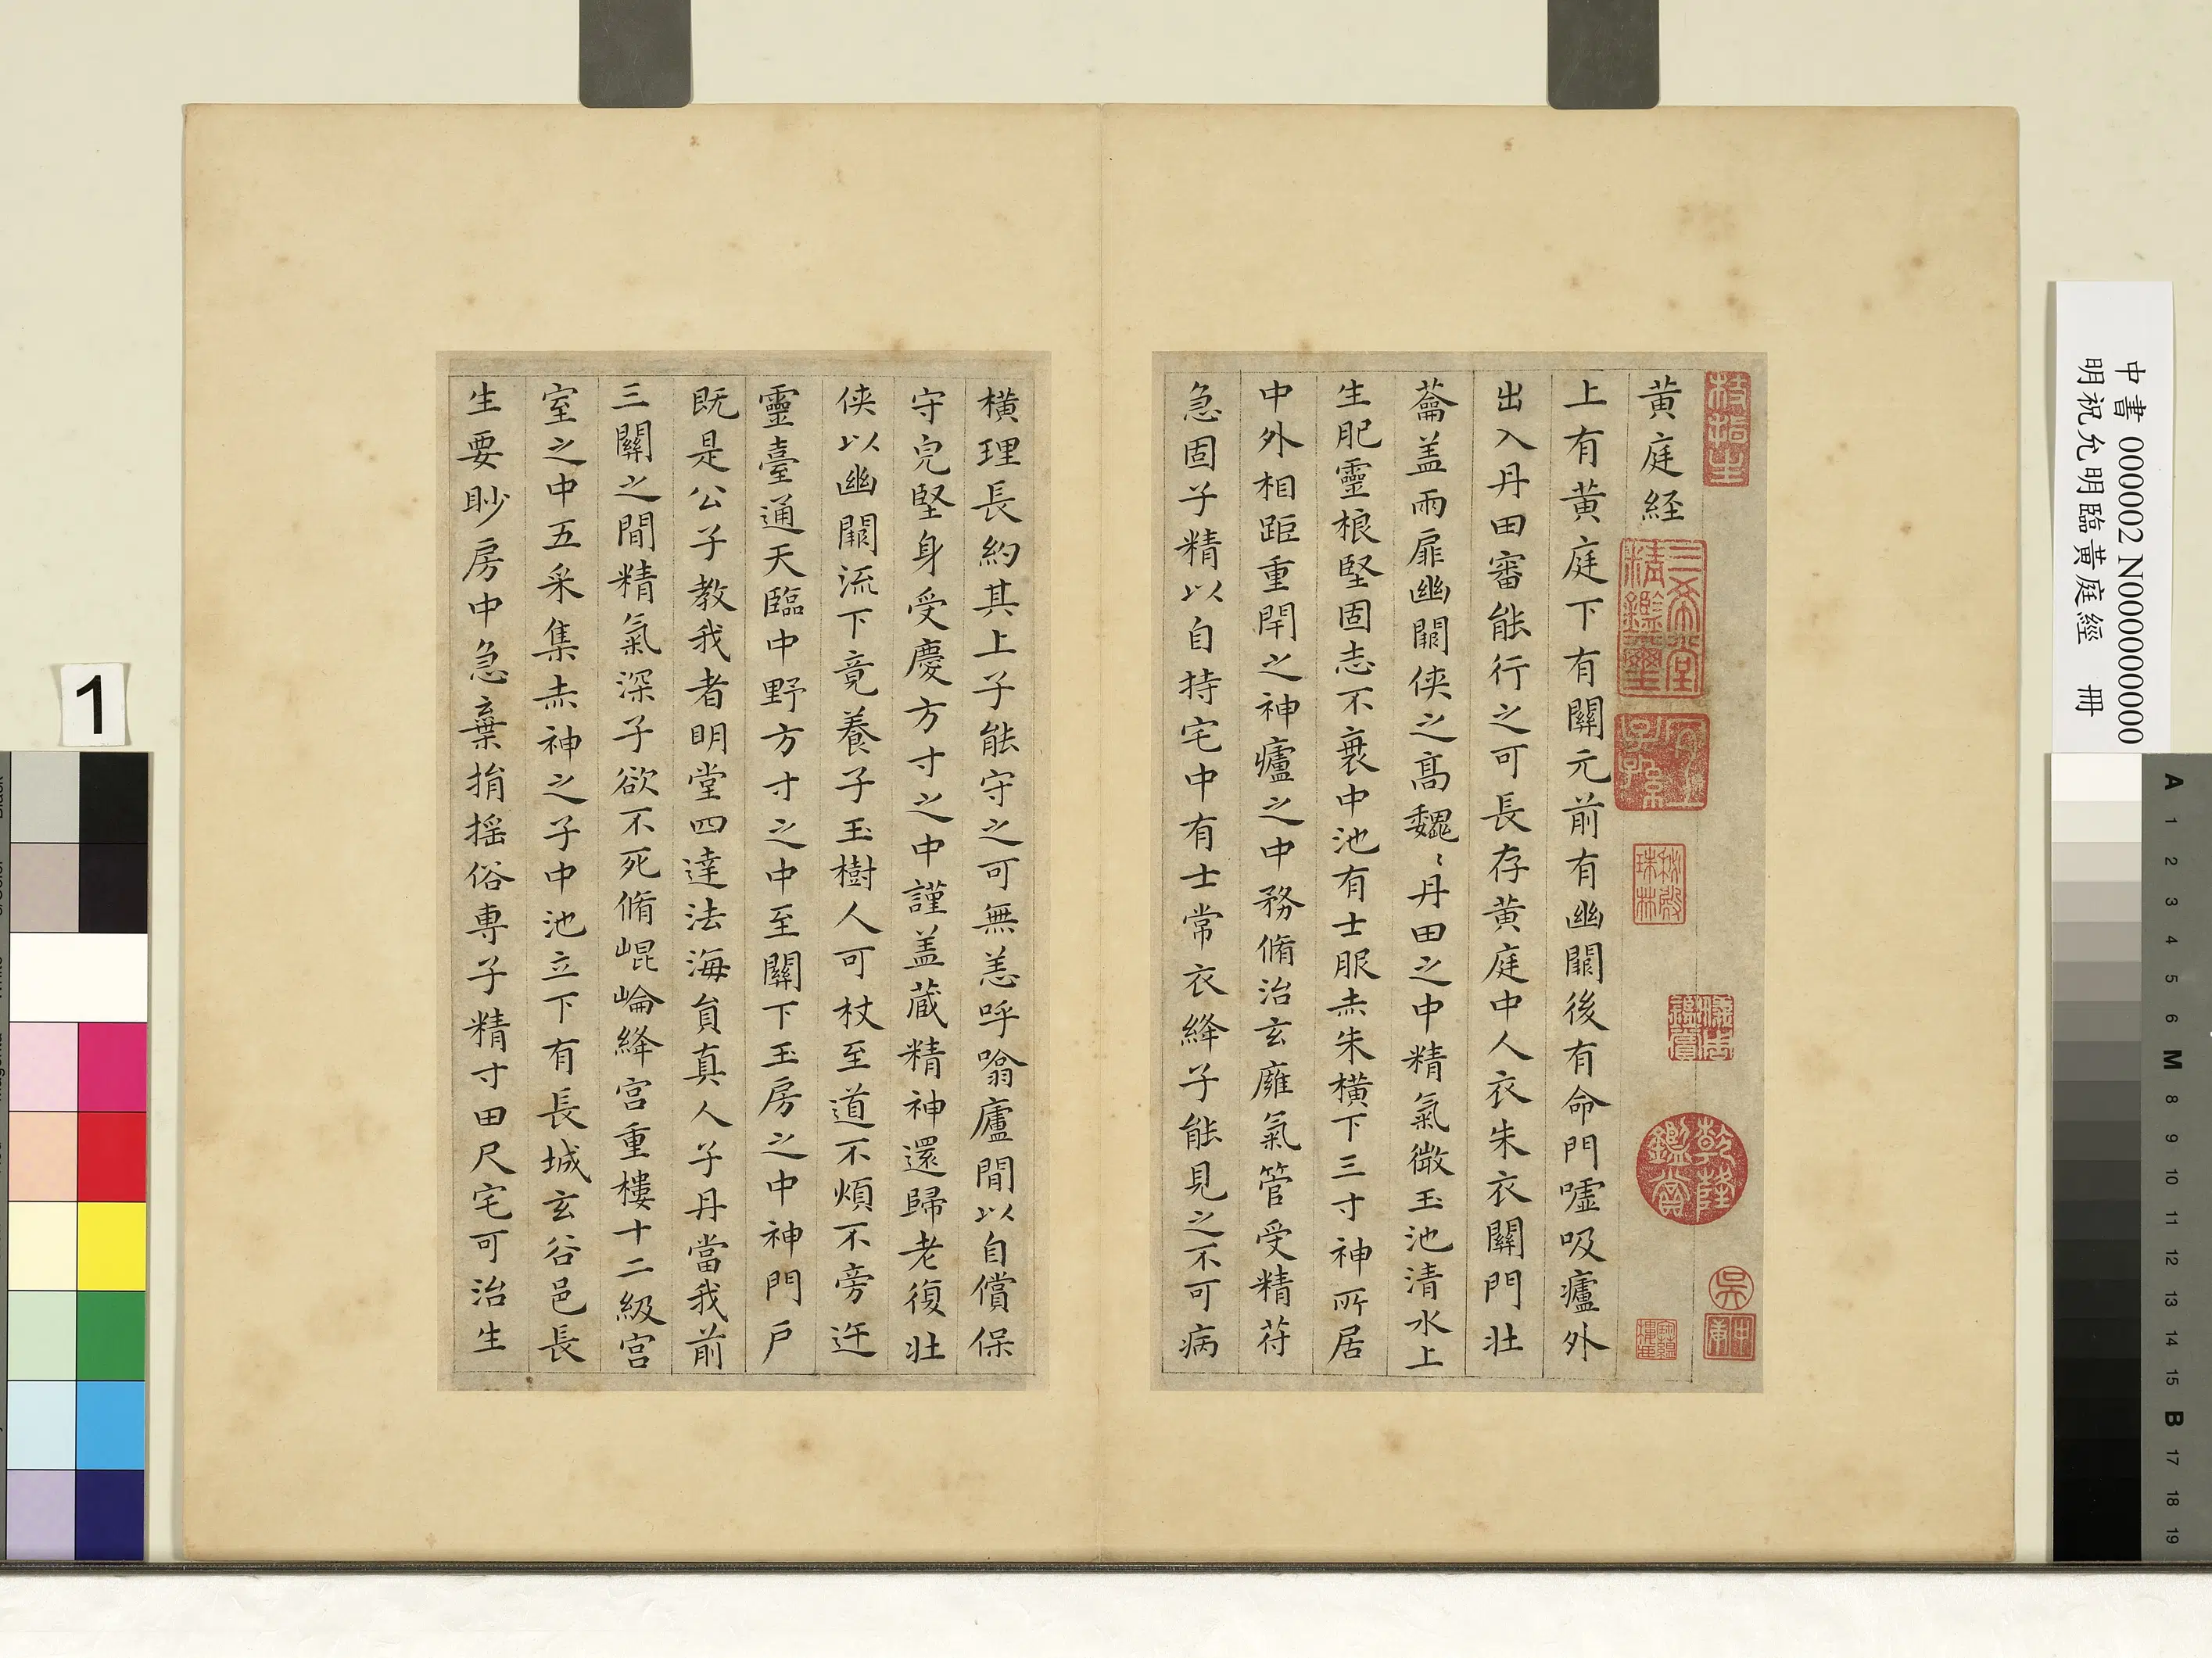 黃庭経
上有黃庭下有關元前有幽闕後有命門噓吸廬外
出入丹田審能行之可長存黃庭中人衣朱衣關門壯
蘥盖兩扉幽闕俠之高魏〻丹田之中精氣微玉池清水上
生肥靈根堅固志不衰中池有士服赤朱橫下三寸神所居
中外相距重閈之神廬之中務脩治玄廱氣管受精苻
急固子精以自持宅中有士常衣絳子能見之不可病
橫理長約其上子能守之可無恙呼噏廬間以自償保
守皃堅身受慶方寸之中謹盖藏精神還歸老復壯
俠以幽闕流下竟養子玉樹人可杖至道不煩不旁迕
靈臺通天臨中野方寸之中至關下玉房之中神門戶
既是公子教我者明堂四達法海貟真人子丹當我前
三關之間精氣深子欲不死脩崐崘絳宮重樓十二級宮
室之中五采集赤神之子中池立下有長城玄谷邑長
生要眇房中急棄捐搖俗專子精寸田尺宅可治生
枝指生
三希堂精鑑璽
宜子孫
秘殿珠林
乾隆鑑賞
吳
中書 000002 N000000000
明祝允明臨黃庭經 冊
1
A 1 2 3 4 5 6 M 8 9 10 11 12 13 14 15 B 17 18 19